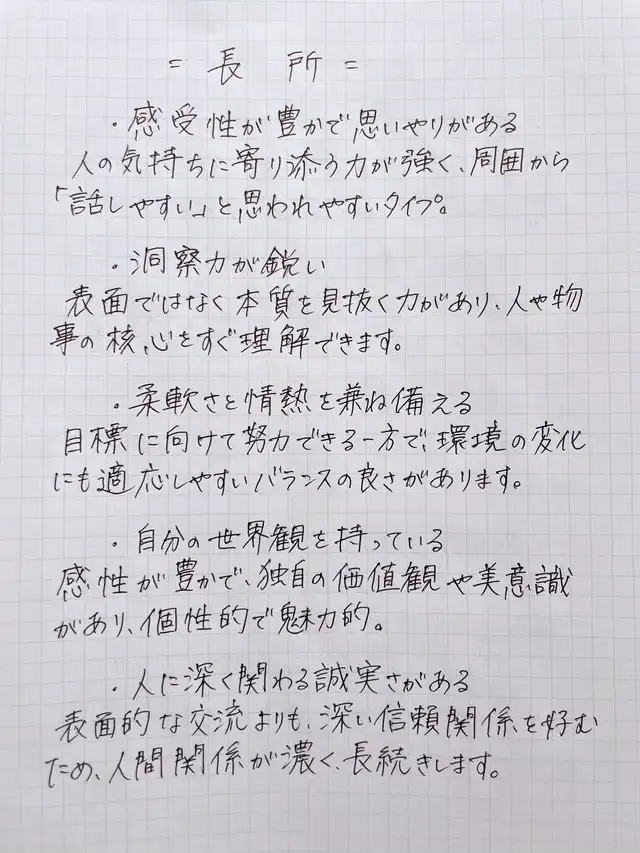 = 長 所 =
・感受性が豊かで思いやりがある
人の気持ちに寄り添う力が強く、周囲から
「話しやすい」と思われやすいタイプ。
・洞察力が鋭い
表面ではなく本質を見抜く力があり、人や物
事の核心をすぐ理解できます。
・柔軟さと情熱を兼ね備える
目標に向けて努力できる一方で、環境の変化
にも適応しやすいバランスの良さがあります。
・自分の世界観を持っている
感性が豊かで、独自の価値観や美意識
があり、個性的で魅力的。
・人に深く関わる誠実さがある
表面的な交流よりも、深い信頼関係を好む
ため、人間関係が濃く、長続きします。